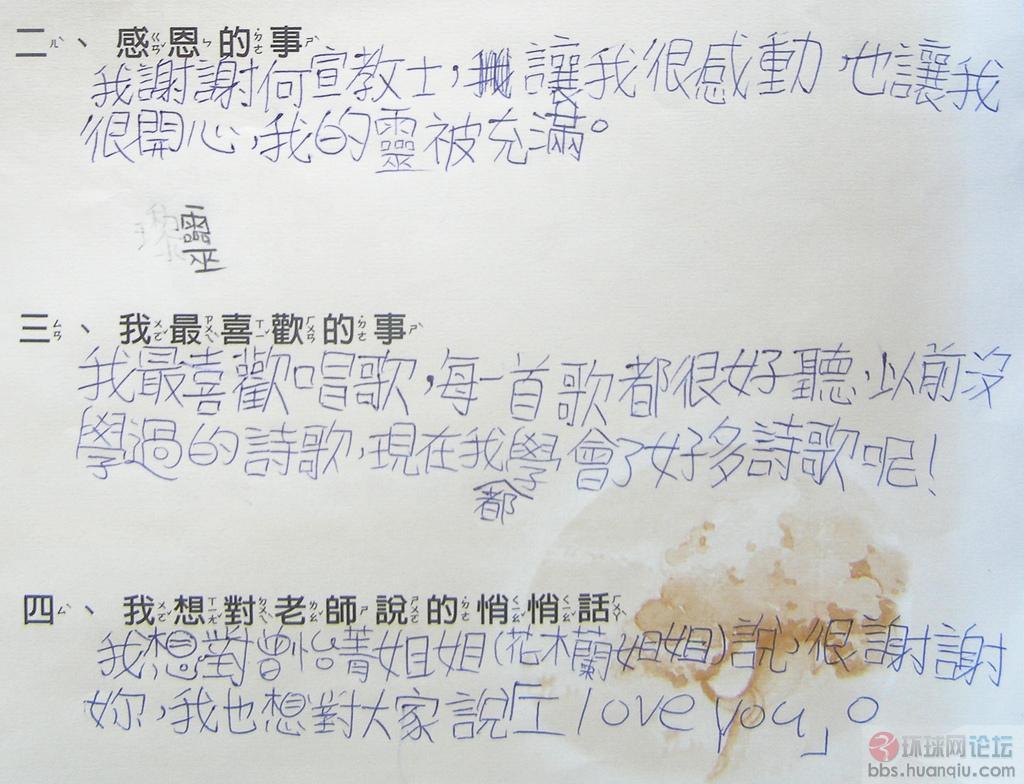 二、感恩的事
我謝謝何宣教士，讓我很感動，也讓我
很開心，我的靈被充滿。
靈
三、我最喜歡的事
我最喜歡唱歌，每一首歌都很好聽，以前沒
學過的詩歌，現在我都學會了好多詩歌呢！
四、我想對老師說的悄悄話
我想對曾怡菁姐姐(花木蘭姐姐)說，很謝謝
妳，我也想對大家說「I love you」。
环球网论坛
bbs.huanqiu.com